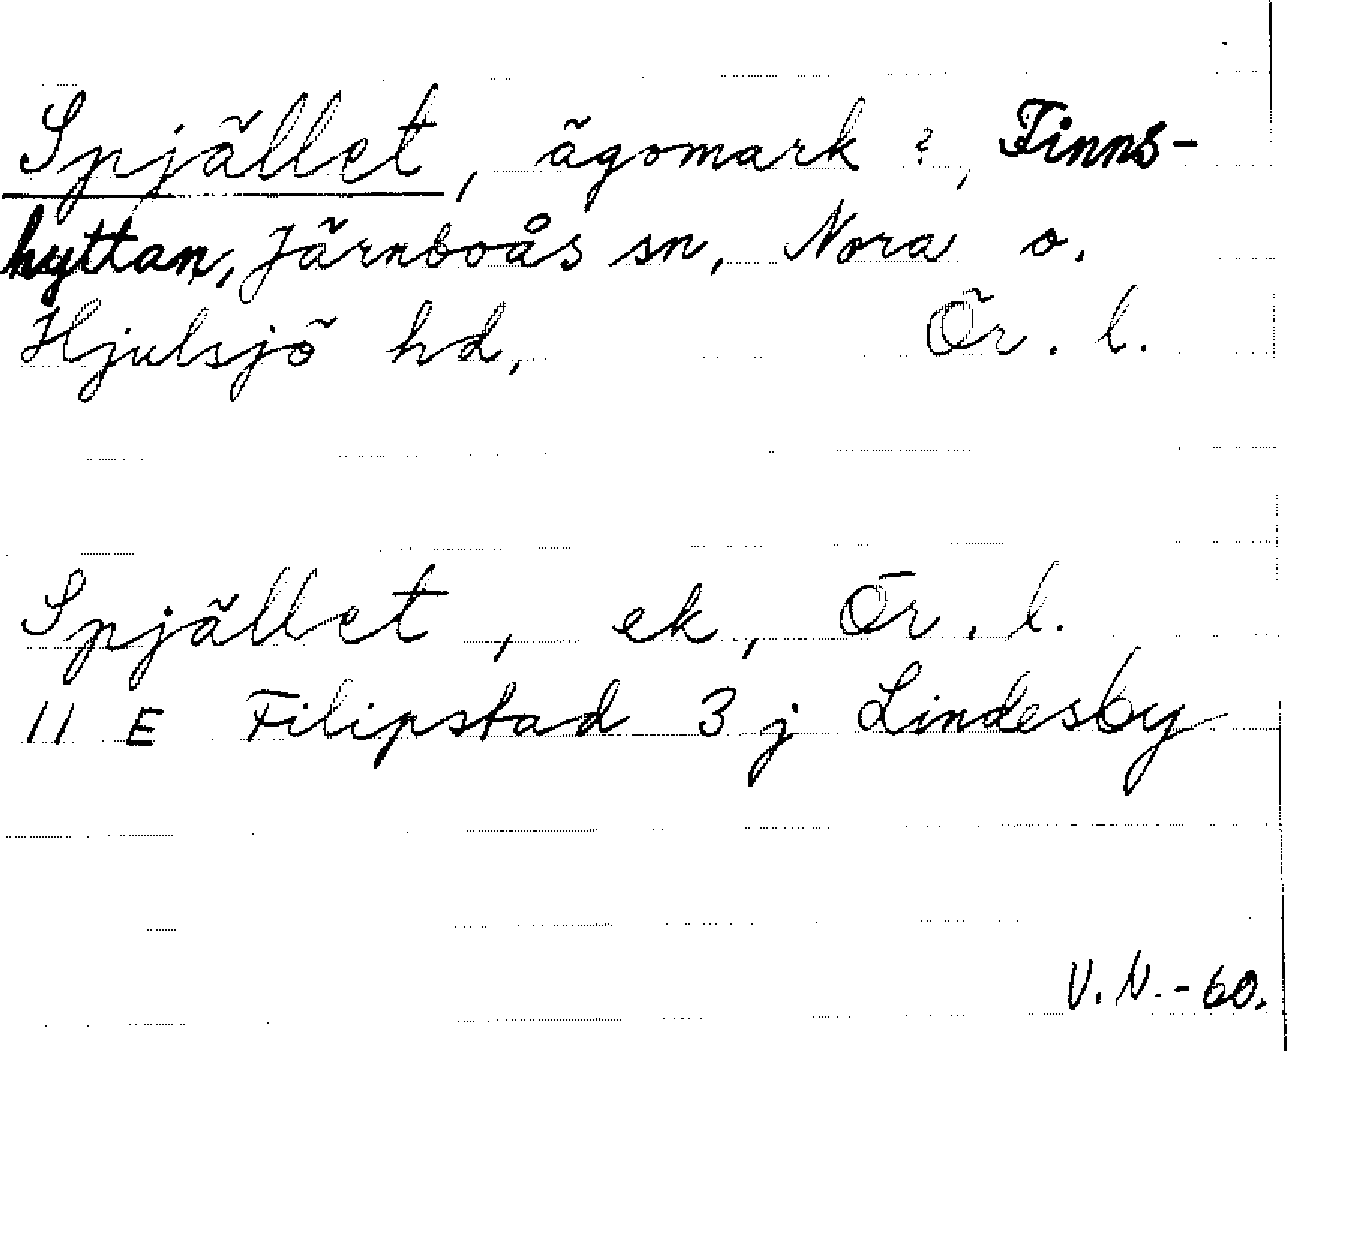 Spjället, ägomark ?, Finns-
hyttan, Järnboås sn, Nora o.
Hjulsjö hd, Ör. l.
Spjället, ek, Ör. l.
11 E Filipstad 3 j Lindesby
V. N. - 60.